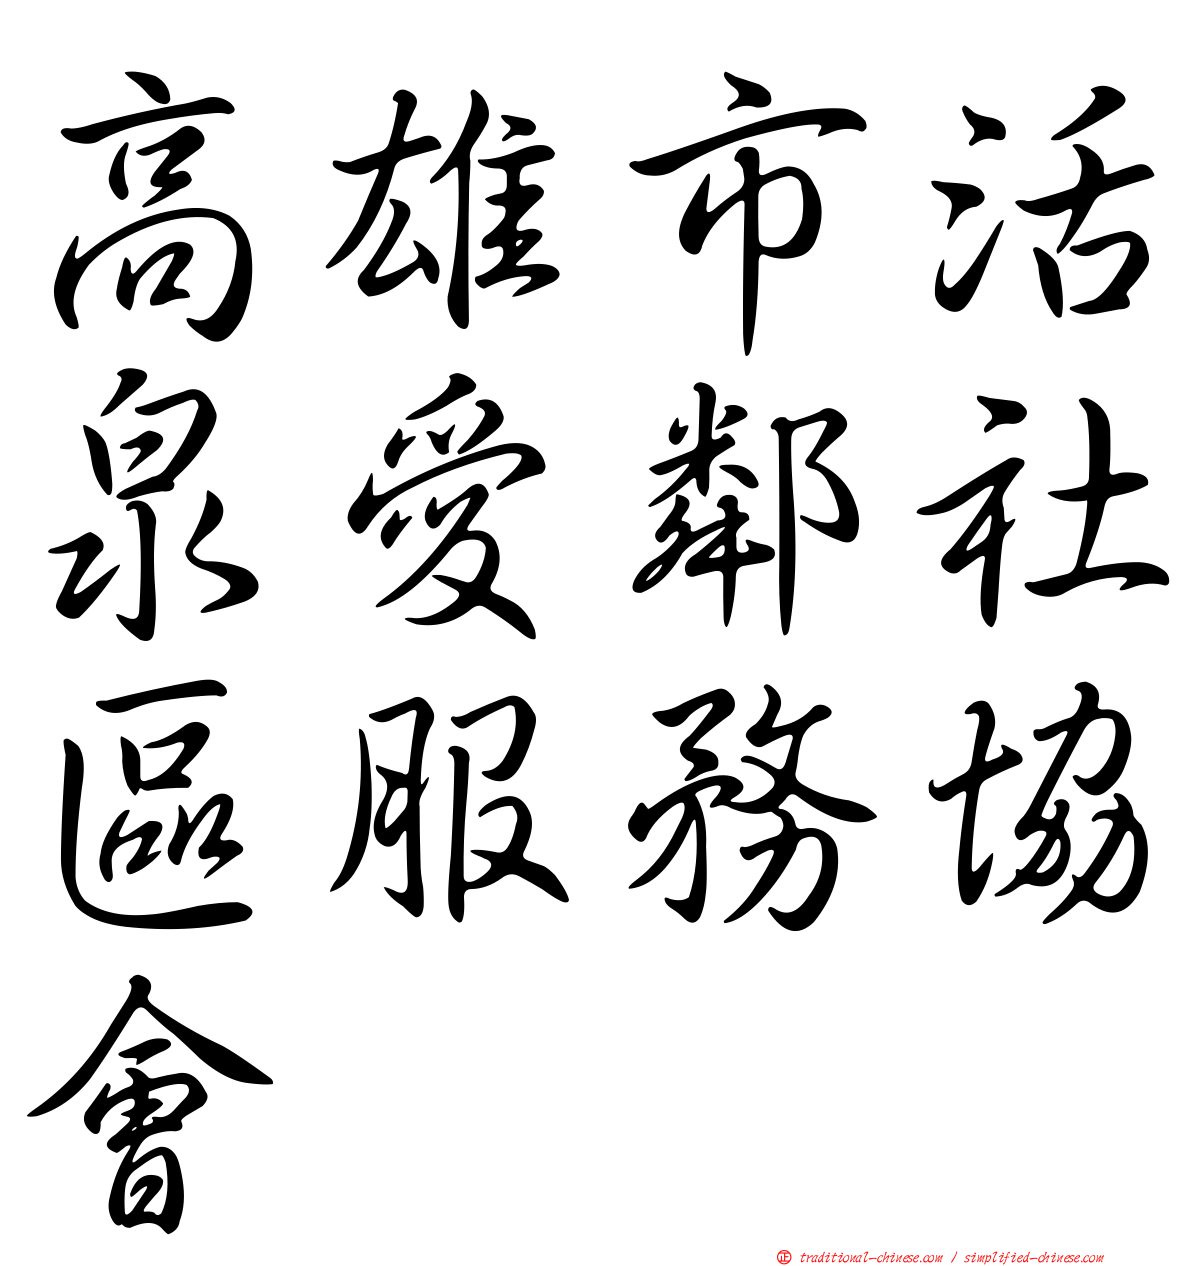 高雄市活
泉愛鄰社
區服務協
會
正 traditional-chinese.com / simplified-chinese.com